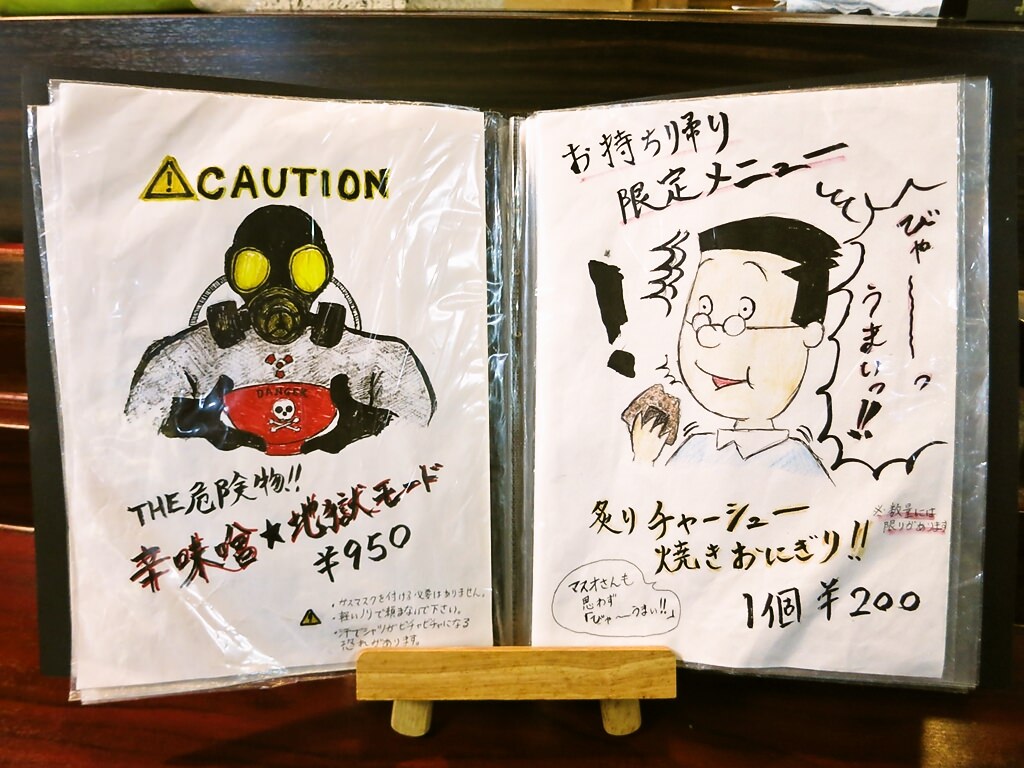 CAUTION
DANGER
THE危険物!!
辛味噌★地獄モード
¥950
・ガスマスクを付ける必要はありません。
・軽いノリで頼まないで下さい。
・汗でシャツがビチャビチャになる
恐れがあります。
お持ち帰り
限定メニュー
びゃーーっ
うまいっ!!
!
炙りチャーシュー
焼きおにぎり!!
※数量には
限りがあります
マスオさんも
思わず
「びゃーうまい!!」
1個 ¥200